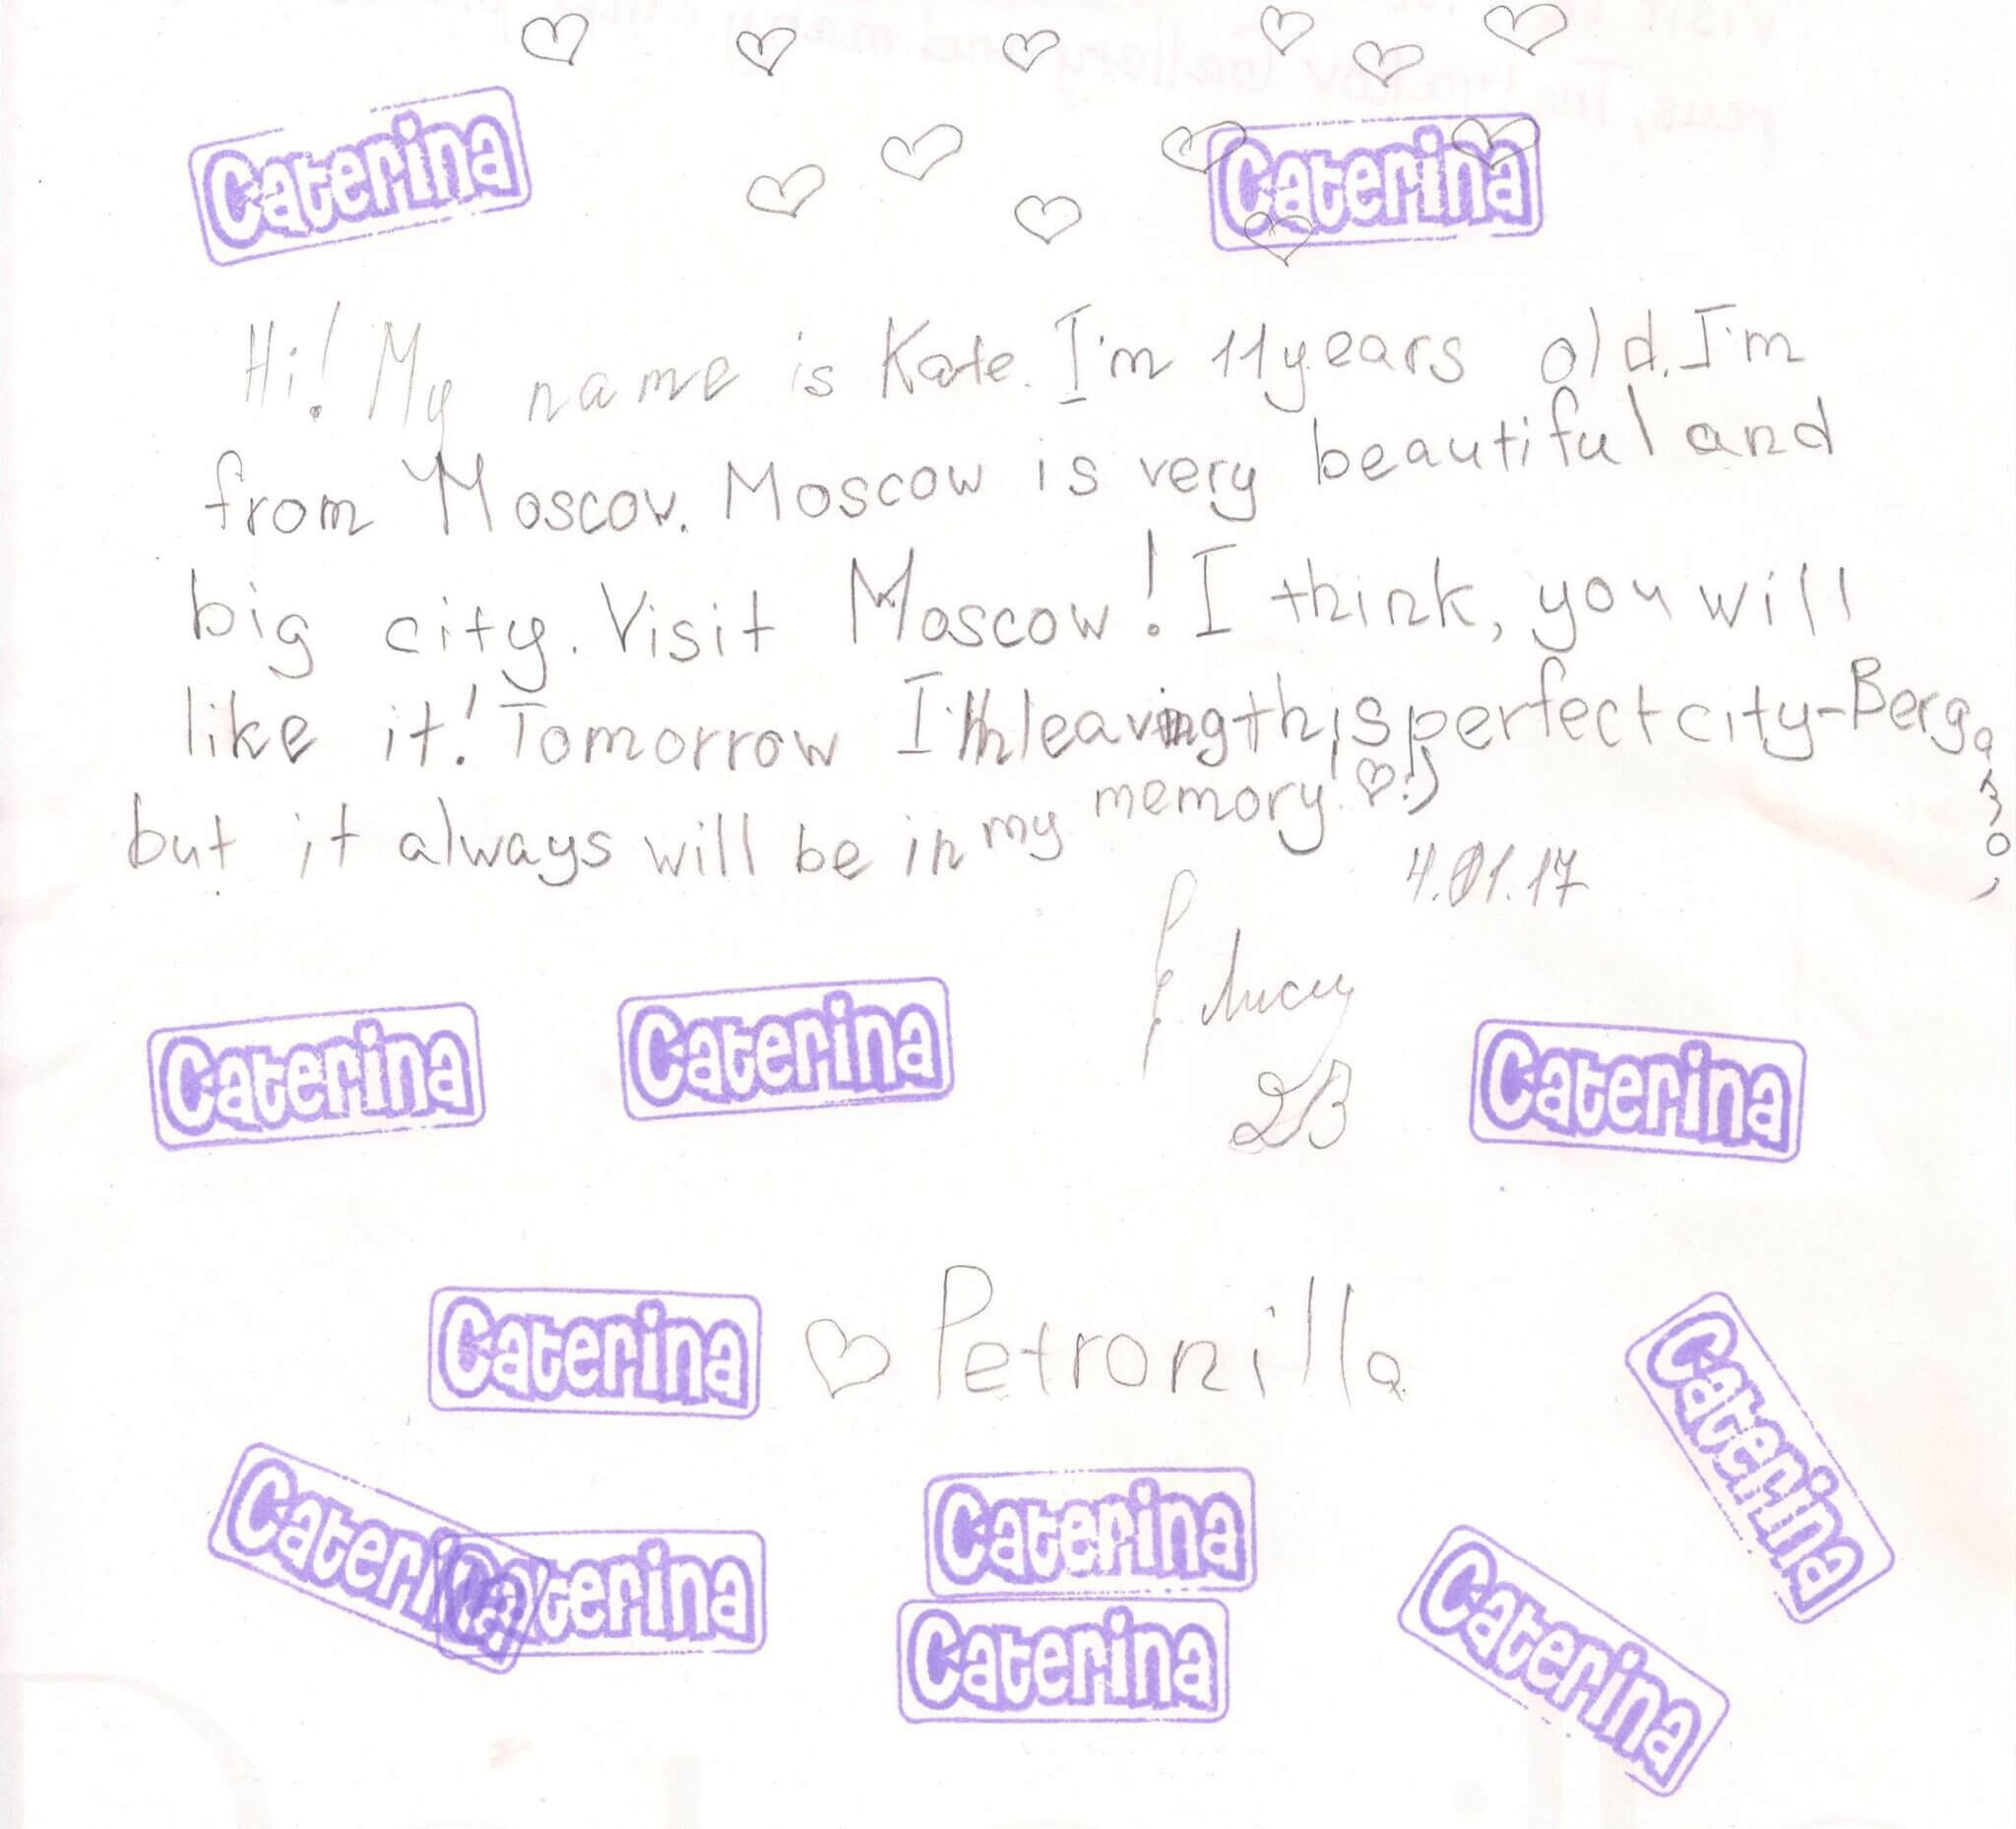 Caterina
Caterina
Hi! My name is Kate. I'm 11 years old. I'm
from Moscow. Moscow is very beautiful and
big city. Visit Moscow! I think, you will
like it! Tomorrow I'm leaving this perfect city-Bergamo,
but it always will be in my memory! ♡!)
4.01.17
Caterina
Caterina
Caterina
Caterina ♡ Petronilla
Caterina
Caterina
Caterina
Caterina
Caterina
Caterina